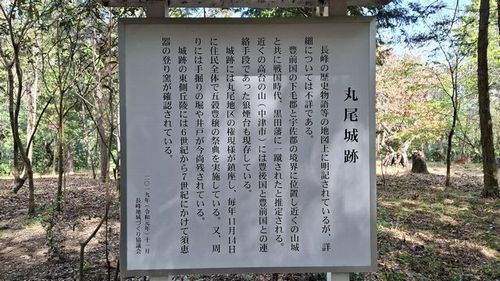 丸尾城跡
長峰の歴史物語等の地図上に明記されているが、詳
細については不詳である。
豊前国の下毛郡と宇佐郡の境界に位置し近くの山城
と共に戦国時代、黒田藩に一蹴されたと推定される。
近くの高台の山（中津市）には豊後国と豊前国との連
絡手段であった狼煙台も現存している。
城跡には丸尾地区の権現様が鎮座し、毎年11月14日
に住民全体で五穀豊穣の祭典を実施している。又、周
りには手掘りの堀や井戸が今尚残されている。
城跡の東側丘陵には6世紀から7世紀にかけて須恵
器の登り窯が確認されている。
二〇一九年（令和元年）十一月
長峰地域づくり協議会